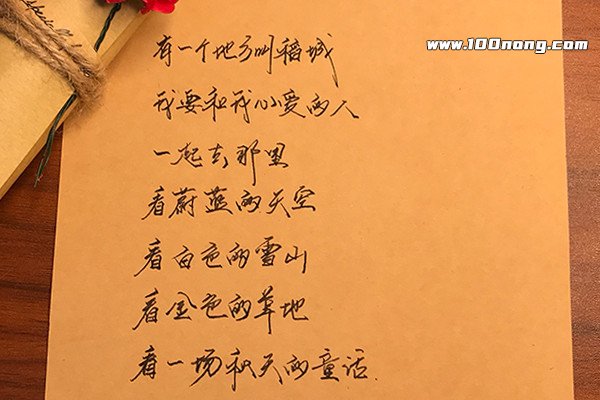 www.100nong.com
有一个地方叫稻城
我要和我心爱的人
一起去那里
看蔚蓝的天空
看白色的雪山
看金色的草地
看一场秋天的童话.